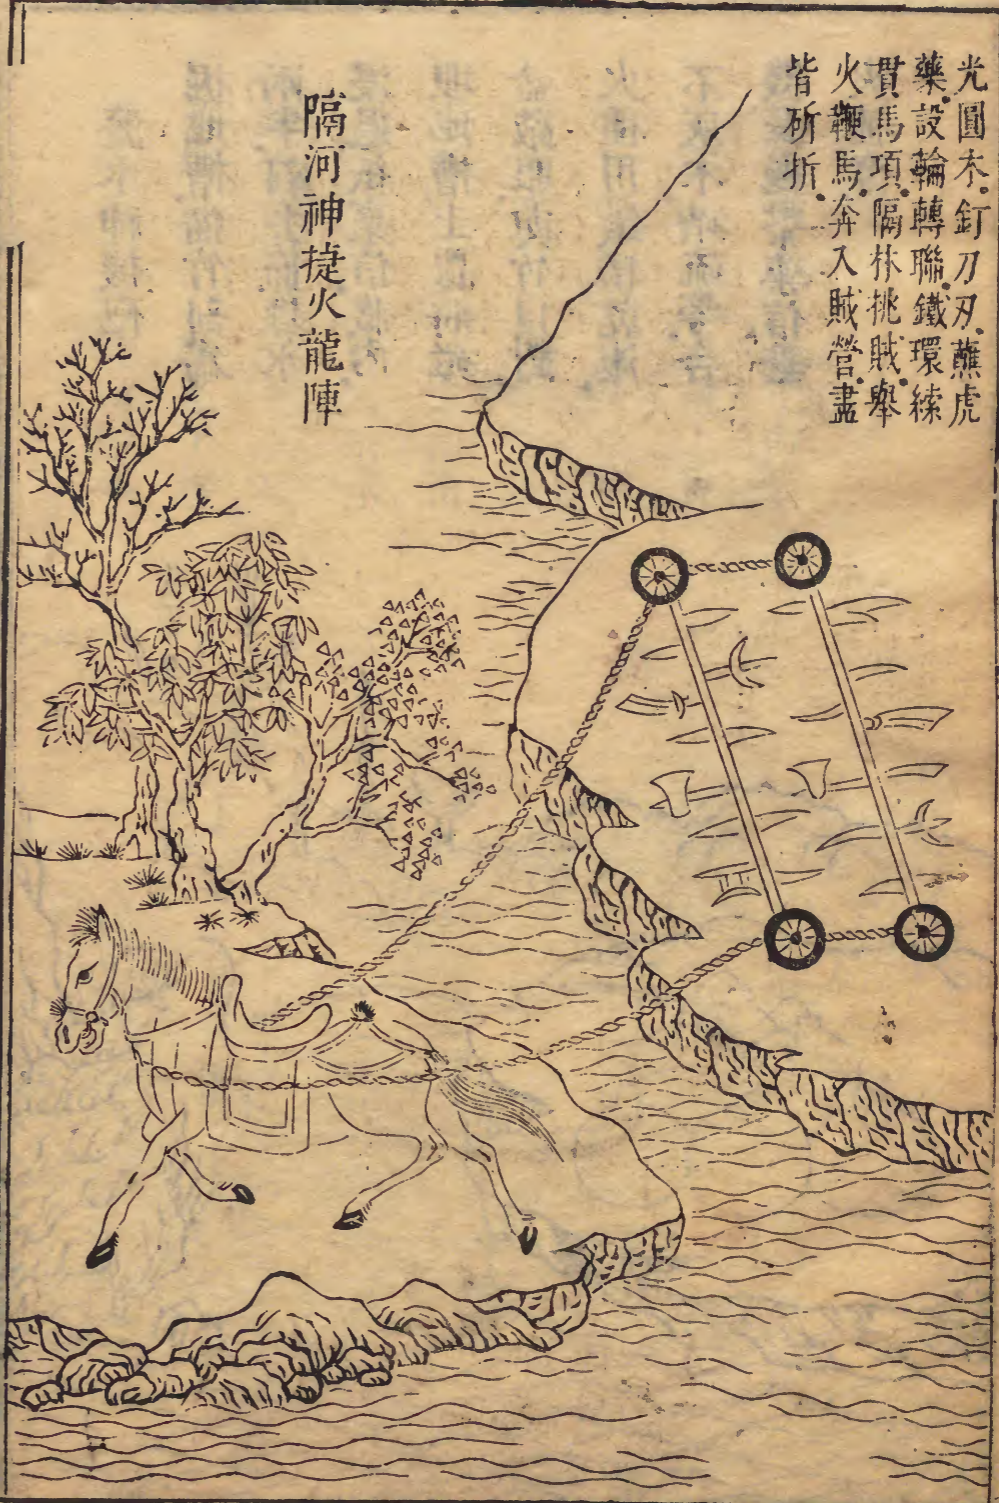 光圓木釘刀刃蘸虎
藥設輪轉聯鐵環練
貫馬項隔林挑賊舉
火鞭馬奔入賊營盡
皆斫折
隔河神捷火龍陣